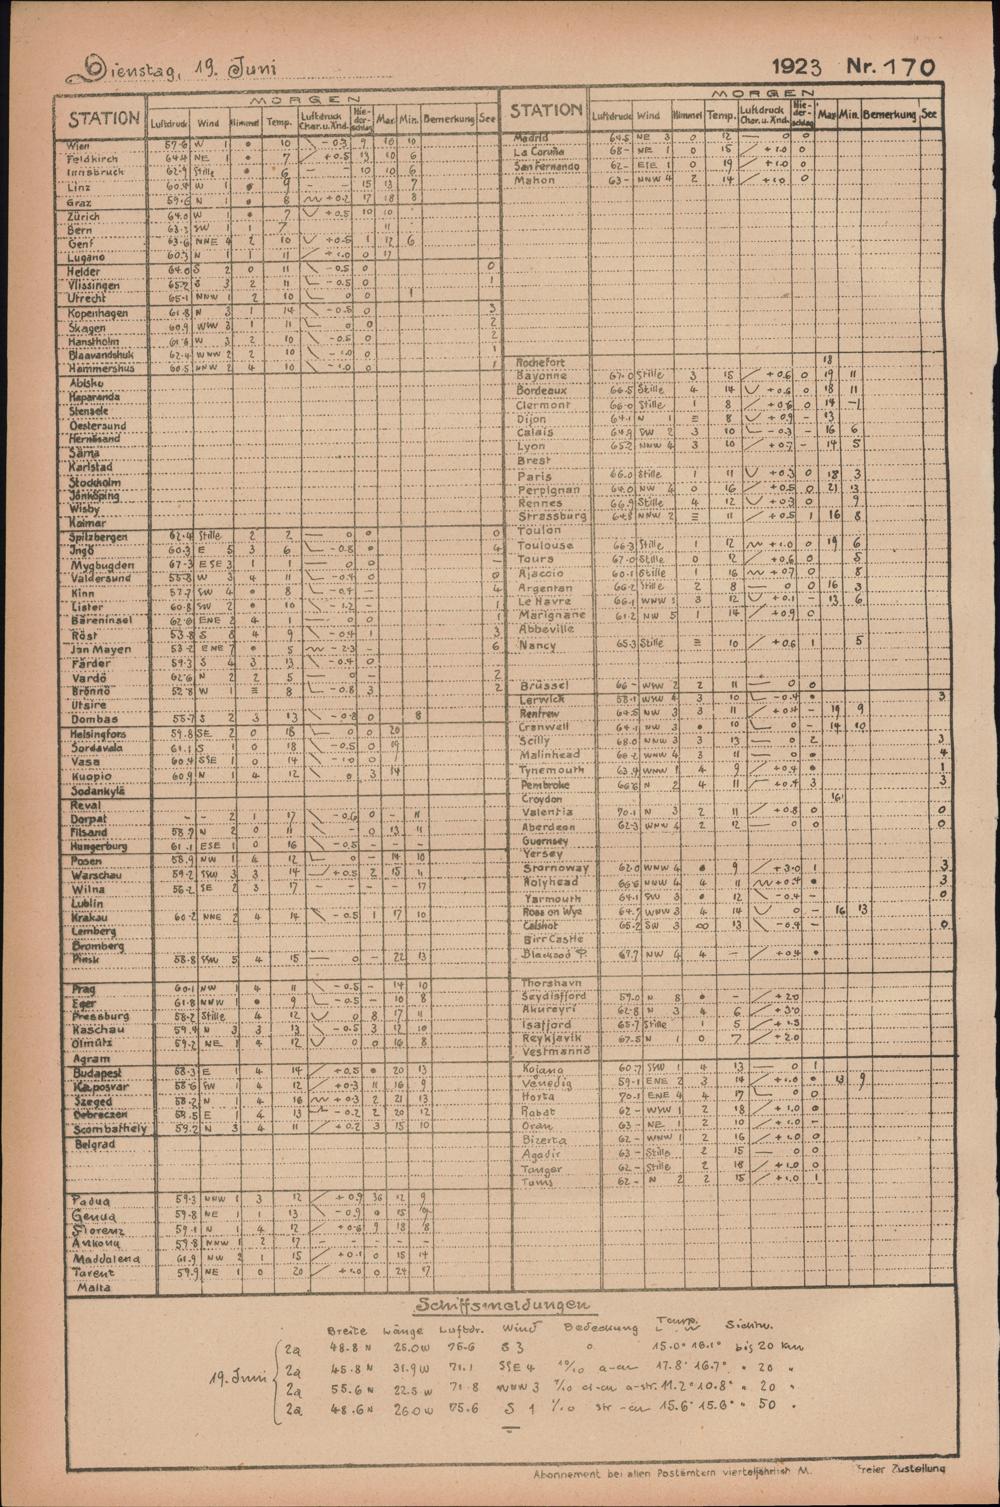 Dienstag, 19. Juni
1923 Nr. 170
MORGEN
STATION Luftdruck Wind Himmel Temp. Luftdruck Char. u. Änd. Nie-der-schlag Max. Min. Bemerkung See
Wien 57.6 W 1 • 10 -0.3 9 10 10
Feldkirch 64.4 NE 1 • 7 +0.5 13 10 6
Innsbruck 62.9 Stille • 6 - - 10 10 6
Linz 60.4 W 1 • 9 - - 15 13 7
Graz 59.6 N 1 • 8 +0.2 17 18 8
Zürich 64.0 W 1 • 7 +0.5 10 10
Bern 63.3 SW 1 1 7 11
Genf 63.6 NNE 4 2 10 +0.5 1 12 6
Lugano 60.3 N 1 1 11 +1.0 0 17
Helder 64.0 S 2 0 11 -0.5 0 0
Vlissingen 65.2 S 3 2 11 -0.5 0 1
Utrecht 65.1 NNW 1 2 10 0 0 1
Kopenhagen 61.8 N 3 1 14 -0.5 0 3
Skagen 60.9 WW 3 1 11 0 0 2
Hanstholm 61.6 W 3 2 10 -0.5 0 2
Blaavandshuk 62.4 WNW 2 2 10 -1.0 0 1
Hammershus 60.5 NNW 2 4 10 -1.0 0 1
Abisko
Haparanda
Stensele
Oestersund
Hernösand
Särna
Karlstad
Stockholm
Jönköping
Wisby
Kalmar
Spitzbergen 62.4 Stille 2 2 — 0 • 0
Ingö 60.3 E 5 3 6 -0.8 • 4
Mygbugden 67.3 ESE 3 1 1 — 0 0 —
Valdersund 55.8 W 3 4 11 -0.4 0 0
Kinn 57.7 SW 4 • 8 -0.4 - 4
Lister 60.8 SW 2 • 10 -1.2 - 1
Bäreninsel 62.0 ENE 2 4 1 — 0 0 1
Röst 53.8 S 6 4 9 -0.4 1 3
Jan Mayen 53.2 ENE 7 • 5 -2.3 - 6
Färder 59.3 S 4 3 13 -0.4 0
Vardö 62.6 N 2 2 5 — 0 - 2
Brönnö 52.8 W 1 ≡ 8 -0.8 3 2
Utsire
Dombas 55.7 S 2 3 13 -0.8 0 8
Helsingfors 59.8 SE 2 0 18 0 0 20
Sordavala 61.1 S 1 0 18 -0.5 0 19
Vasa 60.4 SSE 1 0 14 -1.0 0
Kuopio 60.9 N 1 4 12 0 3 14
Sodankylä
Reval
Dorpat - - 2 1 17 -0.6 0 - 11
Filsand 58.7 N 2 0 11 - 0 13 11
Hungerburg 61.1 ESE 1 0 16 -0.5 - - -
Posen 58.9 NW 1 4 12 0 - 14 10
Warschau 59.2 SSW 3 3 14 +0.5 2 15 11
Wilna 56.2 SE 2 3 17 - - - - 17
Lublin
Krakau 60.2 NNE 2 4 14 -0.5 1 17 10
Lemberg
Bromberg
Pinsk 58.8 SSW 5 4 15 — 0 - 22 13
Prag 60.1 NW 1 4 11 -0.5 - 14 10
Eger 61.8 NNW 1 • 9 -0.5 - 10 8
Pressburg 58.2 Stille 4 12 0 8 17 11
Kaschau 59.4 N 3 3 13 -0.5 3 12 10
Olmütz 59.2 NE 1 4 12 0 0 16 8
Agram
Budapest 58.3 E 1 4 14 +0.5 • 20 13
Kaposvar 58.6 SW 1 4 12 +0.3 11 16 9
Szeged 58.2 N 1 4 16 +0.3 2 21 13
Debreczen 58.5 E 1 4 13 -0.2 2 20 12
Szombathely 59.2 N 3 4 11 +0.2 3 15 10
Belgrad
Padua 59.3 NNW 1 3 12 +0.9 36 12 9
Genua 59.8 NE 1 1 13 -0.9 0 15 9
Florenz 59.1 N 1 4 12 +0.6 9 18 8
Ankona 59.8 NNW 1 2 17 - - - -
Maddalena 61.9 NW 2 1 15 +0.1 0 15 14
Tarent 59.9 NE 1 0 20 +1.0 0 24 17
Malta
MORGEN
STATION Luftdruck Wind Himmel Temp. Luftdruck Char. u. Änd. Nie-der-schlag Max. Min. Bemerkung See
Madrid 64.5 NE 3 0 12 — 0 0
La Coruña 68- NE 1 0 15 +1.0 0
San Fernando 62- ESE 1 0 19 +1.0 0
Mahon 63- NNW 4 2 14 +1.0 0
Rochefort 18
Bayonne 67.0 Stille 3 15 +0.6 0 19 11
Bordeaux 66.5 Stille 4 14 +0.6 0 18 11
Clermont 66.0 Stille 1 8 +0.6 0 14 -1
Dijon 64.1 N 1 ≡ 8 +0.9 - 13
Calais 64.9 SW 2 3 10 -0.3 - 16 6
Lyon 65.2 NNW 4 3 10 +0.7 - 14 5
Brest
Paris 66.0 Stille 1 11 +0.3 0 18 3
Perpignan 64.0 NW 4 0 16 +0.5 0 21 13
Rennes 66.9 Stille 4 12 +0.3 0 9
Strassburg 64.8 NNW 2 ≡ 11 +0.5 1 16 8
Toulon
Toulouse 66.3 Stille 1 12 +1.0 0 19 6
Tours 67.0 Stille 0 12 +0.6 0 5
Ajaccio 60.1 Stille 1 16 +0.7 0 8
Argentan 66.2 Stille 2 8 — 0 0 16 3
Le Havre 66.1 WNW 1 3 12 +0.1 - 13 6
Marignane 61.2 NW 5 1 14 +0.9 0
Abbeville
Nancy 65.3 Stille ≡ 10 +0.6 1 5
Brüssel 66- WSW 2 2 11 — 0 0
Lerwick 58.1 WSW 4 3 10 -0.4 • 3
Renfrew 64.5 NW 3 3 11 +0.4 - 19 9
Cranwell 64.1 NW 3 • 10 0 - 14 10
Scilly 68.0 NNW 3 3 13 — 0 2 3
Malinhead 60.2 WNW 4 3 11 — 0 • 4
Tynemouth 63.9 WNW 1 4 9 +0.4 • 1
Pembroke 66.6 N 2 4 11 +0.4 3 3
Croydon 16
Valentia 70.1 N 3 2 11 +0.8 0 0
Aberdeen 62.3 WNW 4 2 12 — 0 0 0
Guernsey
Yersey
Stornoway 62.0 WNW 4 • 9 +3.0 1 3
Holyhead 66.6 NNW 4 4 11 +0.4 • 3
Yarmouth 64.1 SW 3 • 12 -0.4 - 0
Ross on Wye 64.7 WNW 3 4 14 0 - 16 13
Calshot 65.2 SW 3 ∞ 13 -0.4 - 0
Birr Castle
Blacksod P. 67.7 NW 4 4 - +0.4 •
Thorshavn
Seydisfjord 59.0 N 8 • - +2.0
Akureyri 62.8 N 3 4 6 +3.0
Isafjord 65.7 Stille 1 5 +1.5
Reykjavik 67.5 N 1 0 7 +2.0
Vestmannö
60.7 SSW 1 4 13 — 0 1
Venedig 59.1 ENE 2 3 14 +1.0 • 13 9
Horta 70.1 ENE 4 4 17 0 0
Rabat 62- WSW 1 2 18 +1.0 0
Oran 63- NE 1 2 10 +1.0 -
Bizerta 62- WNW 1 2 16 +1.0 0
Agadir 63- Stille 2 15 — 0 0
Tanger 62- Stille 2 18 +1.0 0
Tunis 62- N 2 2 15 +1.0 1
Schiffsmeldungen
Breite Länge Luftdr. Wind Bedeckung Temp. L. W. Sichtw.
19. Juni
2a 48.8 N 25.0 W 75.6 S 3 0 15.0° 16.1° bis 20 km
2a 45.8 N 31.9 W 71.1 SSE 4 10/10 a-cu 17.8° 16.7° " 20 "
2a 55.6 N 22.5 W 71.8 WNW 3 7/10 ci-cu a-str. 11.2° 10.8° " 20 "
2a 48.6 N 26.0 W 75.6 S 1 1/10 str-cu 15.6° 15.6° " 50 "
Abonnement bei allen Postämtern vierteljährlich M. freier Zustellung